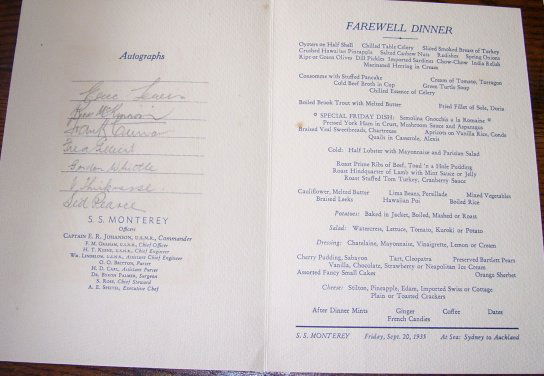 Autographs
Gordon Whittle
Ted Pearce
S. S. MONTEREY
Officers
CAPTAIN E. R. JOHANSON, U.S.N.R., Commander
F. M. GRAHAM, U.S.N.R., Chief Officer
H. T. KEENE, U.S.N.R., Chief Engineer
WM. LINDELOW, U.S.N.R., Assistant Chief Engineer
O. O. BRITTON, Purser
H. D. CARL, Assistant Purser
DR. BYRON PALMER, Surgeon
S. ROSS, Chief Steward
A. E. SMITH, Executive Chef
FAREWELL DINNER
Oysters on Half Shell Chilled Table Celery Sliced Smoked Breast of Turkey
Crushed Hawaiian Pineapple Salted Cashew Nuts Radishes Spring Onions
Ripe or Green Olives Dill Pickles Imported Sardines Chow-Chow India Relish
Marinated Herring in Cream
Consomme with Stuffed Pancake Cream of Tomato, Tarragon
Cold Beef Broth in Cup Green Turtle Soup
Chilled Essence of Celery
Boiled Brook Trout with Melted Butter Fried Fillet of Sole, Doria
* SPECIAL FRIDAY DISH: Semolina Gnocchis a la Romaine *
Pressed York Ham in Crust, Mushroom Sauce and Asparagus
Braised Veal Sweetbreads, Chartreuse Apricots on Vanilla Rice, Conde
Quails in Casserole, Alexis
Cold: Half Lobster with Mayonnaise and Parisian Salad
Roast Prime Ribs of Beef, Toad 'n a Hole Pudding
Roast Hindquarter of Lamb with Mint Sauce or Jelly
Roast Stuffed Tom Turkey, Cranberry Sauce
Cauliflower, Melted Butter Lima Beans, Persillade Mixed Vegetables
Braised Leeks Hawaiian Poi Boiled Rice
Potatoes: Baked in Jacket, Boiled, Mashed or Roast
Salad: Watercress, Lettuce, Tomato, Kuroki or Potato
Dressing: Chatelaine, Mayonnaise, Vinaigrette, Lemon or Cream
Cherry Pudding, Sabayon Tart, Cleopatra Preserved Bartlett Pears
Vanilla, Chocolate, Strawberry or Neapolitan Ice Cream
Assorted Fancy Small Cakes Orange Sherbet
Cheese: Stilton, Pineapple, Edam, Imported Swiss or Cottage
Plain or Toasted Crackers
After Dinner Mints Ginger Coffee Dates
French Candies
S. S. MONTEREY Friday, Sept. 20, 1935 At Sea: Sydney to Auckland